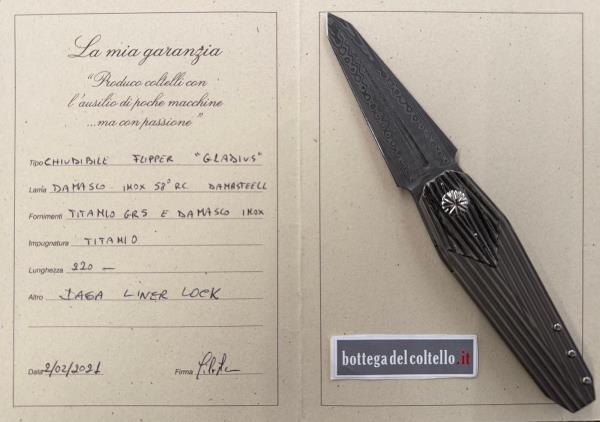 La mia garanzia
"Produco coltelli con
l'ausilio di poche macchine
...ma con passione"
Tipo CHIUDIBILE FLIPPER "GLADIUS"
Lama DAMASCO INOX 58° RC DAMASTEELL
Fornimenti TITANIO GR5 E DAMASCO INOX
Impugnatura TITANIO
Lunghezza 220 —
Altro DAGA LINER LOCK
Data 2/02/2021
Firma
bottegadelcoltello.it